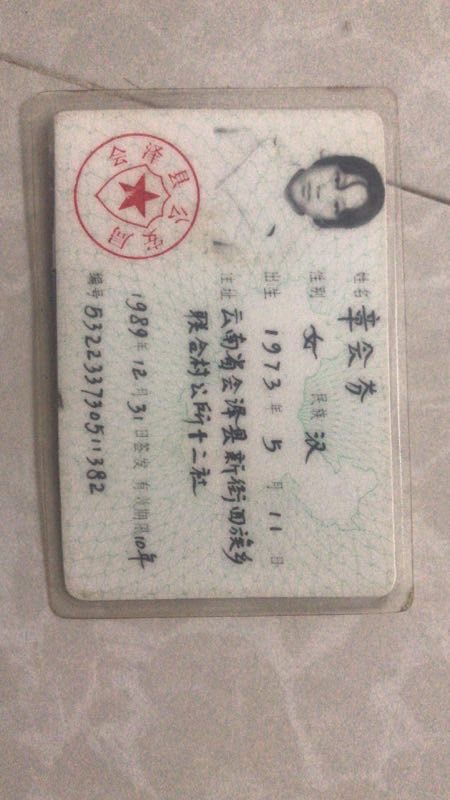 姓名 章会芬
性别 女 民族 汉
出生 1973年5月11日
住址 云南省会泽县新街回族乡
联合村公所十二社
1989年12月31日签发 有效期限10年
编号 532233730511382
会泽县公安局